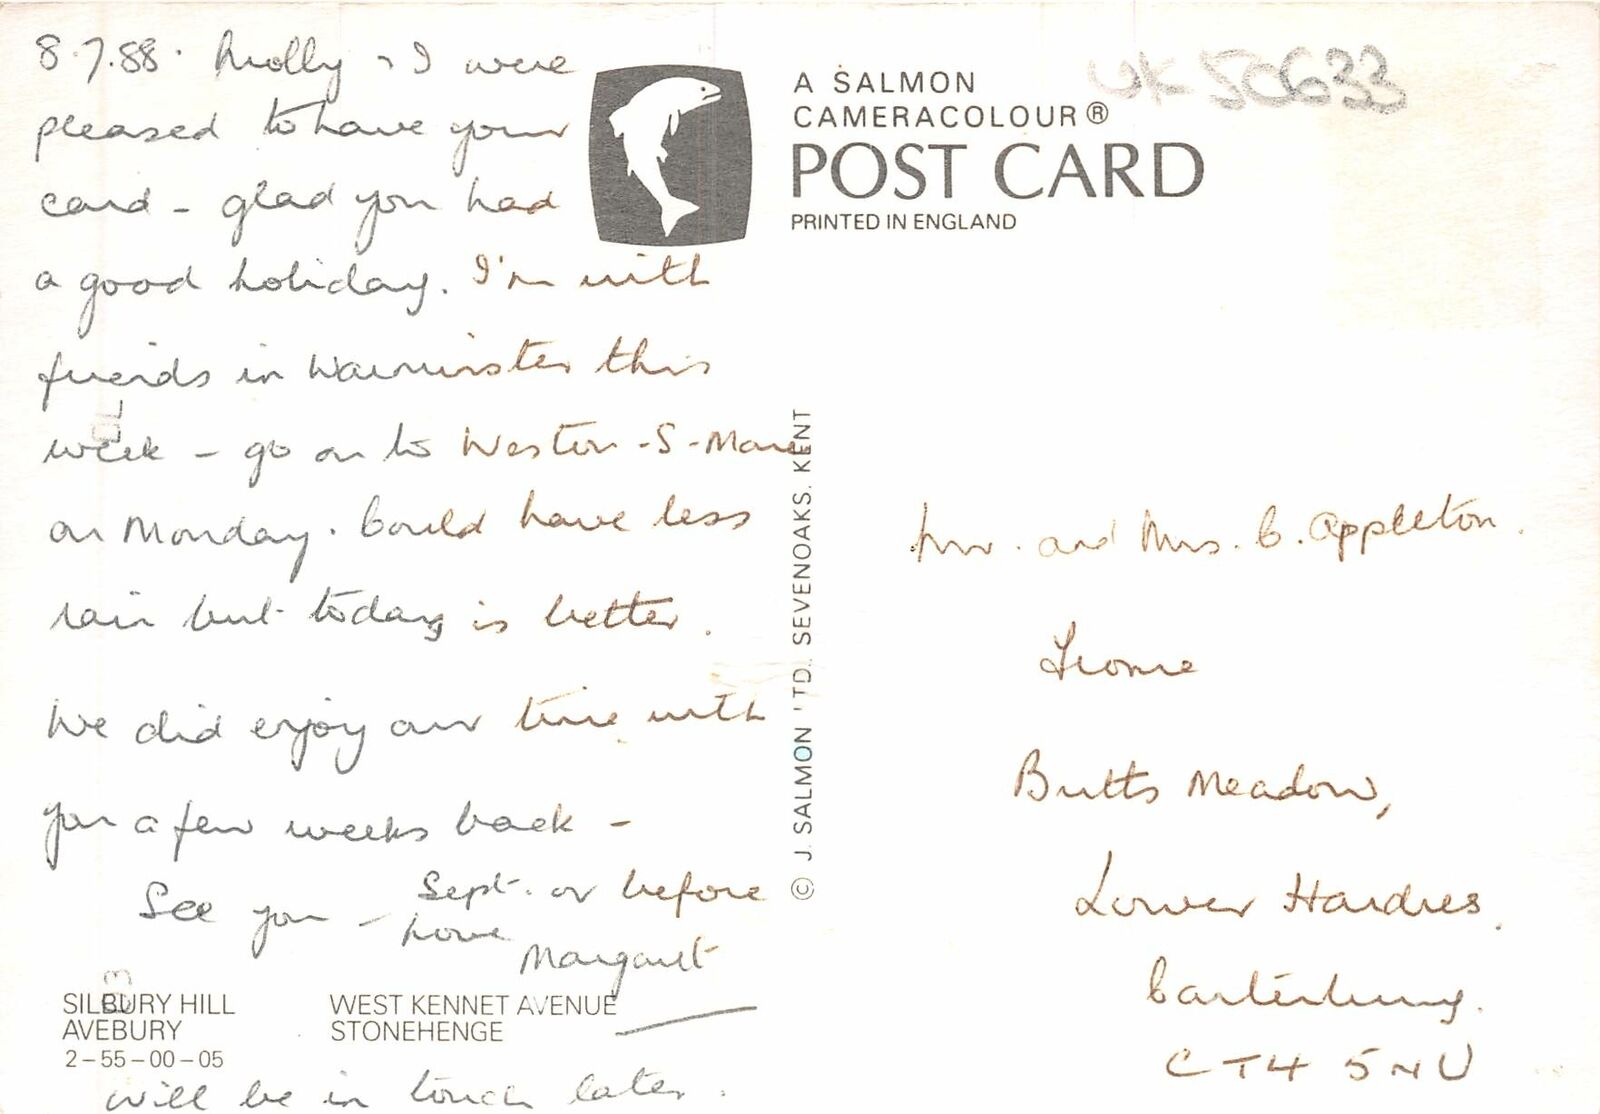 8.7.88. Molly & I were
pleased to have your
card - glad you had
a good holiday. I'm with
friends in Warminster this
week - go on to Weston-S-Mare
on Monday. Could have less
rain but today is better.
We did enjoy our time with
you a few weeks back -
See you - Sept. or before
Love
Margaret
SILBURY HILL
AVEBURY
2-55-00-05
WEST KENNET AVENUE
STONEHENGE
will be in touch later.
A SALMON
CAMERACOLOUR®
POST CARD
PRINTED IN ENGLAND
UK50633
© J. SALMON LTD. SEVENOAKS. KENT
Mr. and Mrs. C. Appleton.
Butts Meadow,
Lower Hardres.
Canterbury.
CT4 5NU